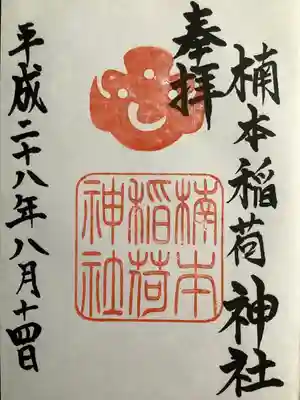 奉拝
楠本稲荷神社
楠本
稲荷
神社
平成二十八年八月十四日